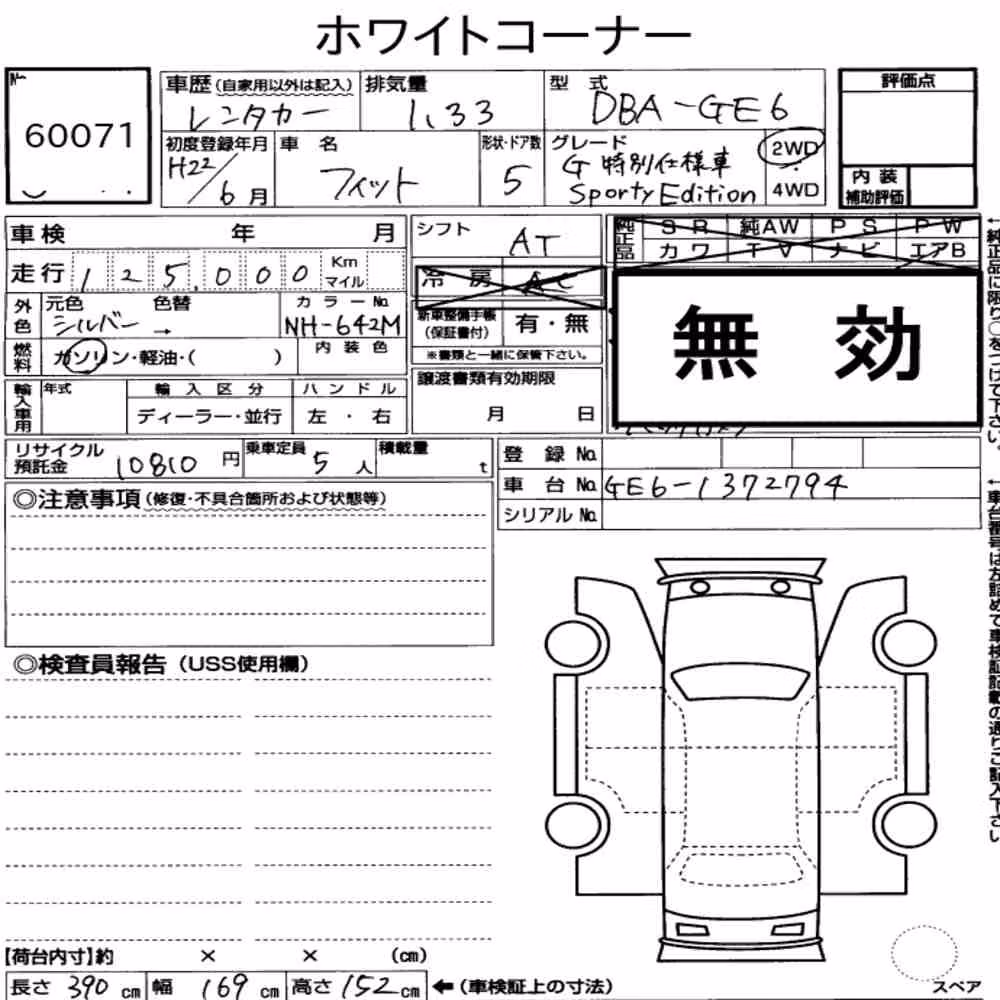 ホワイトコーナー
No.
60071
車歴 (自家用以外は記入) 排気量 型式 評価点
レンタカー 1,33 DBA-GE6
初度登録年月 車名 形状・ドア数 グレード 2WD
H22/6月 フィット 5 G 特別仕様車 Sporty Edition 4WD
内装補助評価
車検 年 月 シフト AT 純正品 SR 純AW PS PW
カワ TV ナビ エアB
走行 125,000 Km マイル 冷房 AC
無効
外色 元色 色替 カラーNo.
シルバー → NH-642M
新車整備手帳 (保証書付) 有・無
※書類と一緒に保管下さい。
燃料 ガソリン・軽油・( ) 内装色
輸入車用 年式 輸入区分 ハンドル 譲渡書類有効期限
ディーラー・並行 左・右 月 日
リサイクル預託金 10810円 乗車定員 5人 積載量 t 登録No.
車台No. GE6-1372794
シリアルNo.
◎注意事項 (修復・不具合箇所および状態等)
◎検査員報告 (USS使用欄)
【荷台内寸】約 × × (cm)
長さ 390 cm 幅 169 cm 高さ 152 cm ←(車検証上の寸法)
スペア
←純正品に限り○をつけて下さい。
←車台番号は左詰めで車検証記載の通りご記入下さい